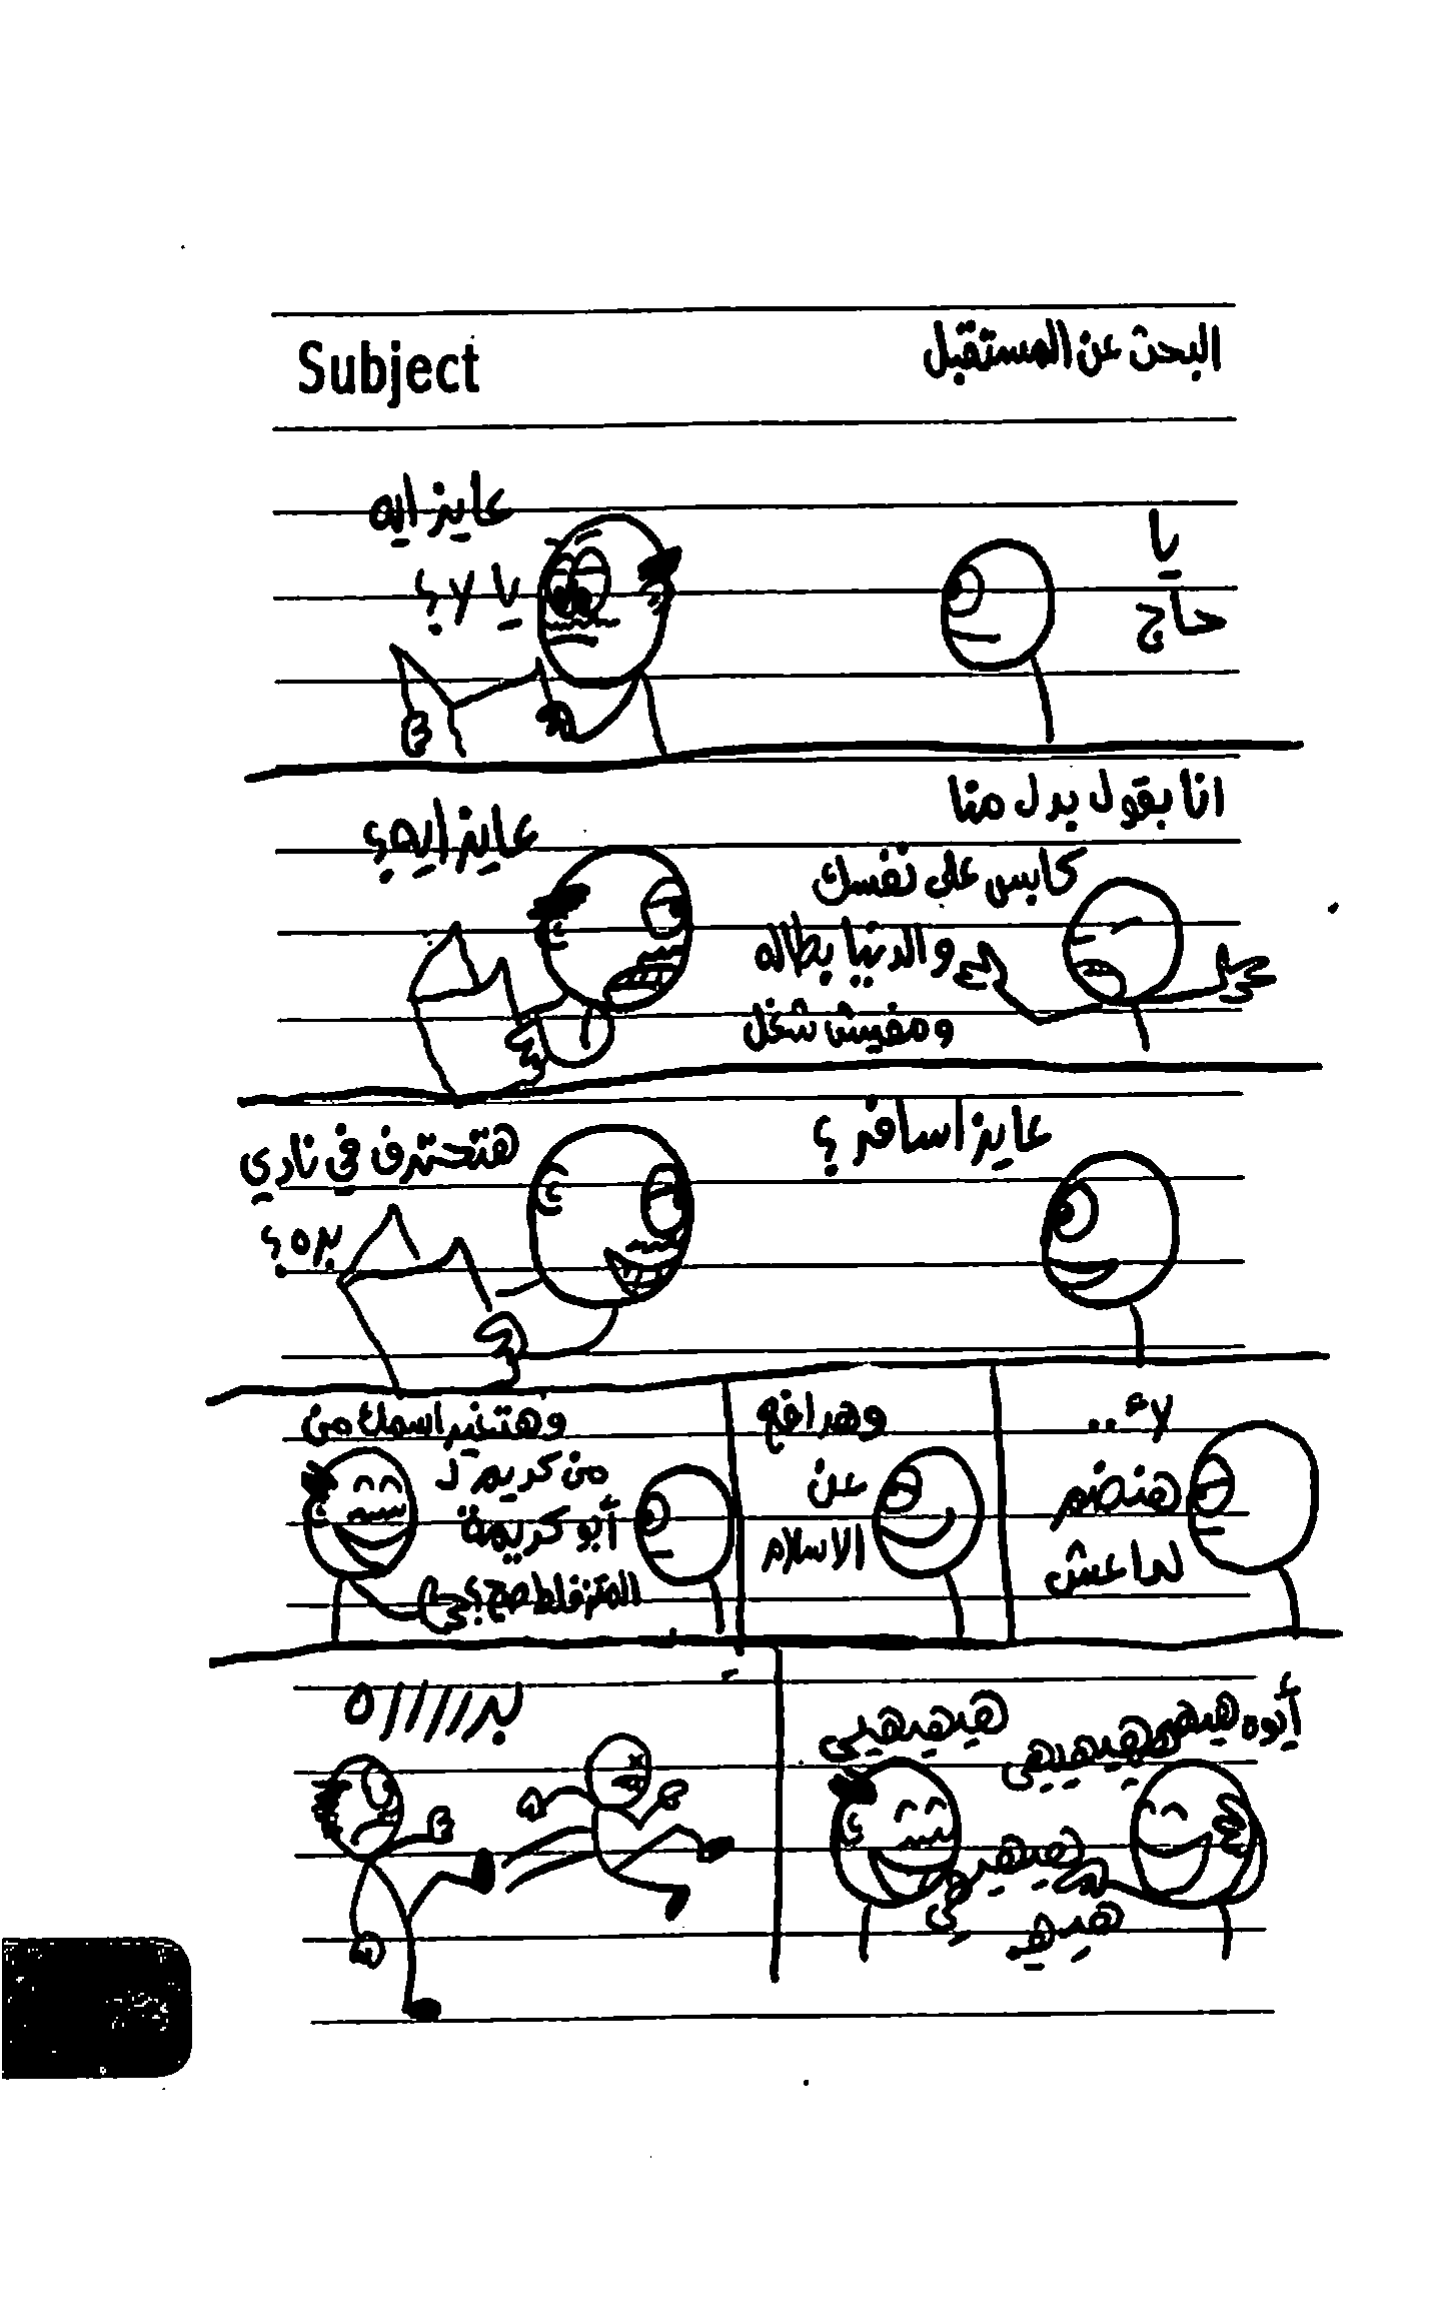 Subject
البحث عن المستقبل
يا
حاج
عايز ايه
يا لا؟
انا بقول بدل منا
كابس على نفسك
والدنيا بطاله
ومفيش شغل
عايز ايه؟
عايز اسافر؟
هتحترف في نادي
بره؟
لاء..
هنضم
لداعش
وهدافع
عن
الاسلام
وهتغير اسمك من
من كريم لـ
أبو كريمة
صح؟
أيوه هيهي
هيهيهيهي
هيهيهيى
بر/////ه